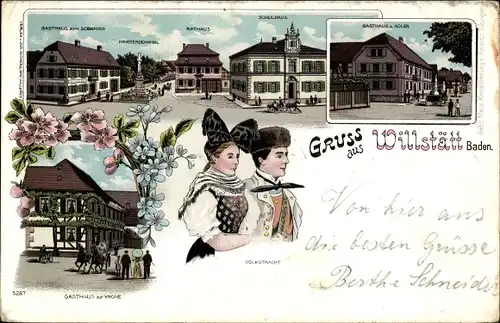 GASTHAUS ZUM SCHWANEN
KRIEGERDENKMAL
RATHAUS
SCHULHAUS
GASTHAUS z. ADLER
GRUSS
aus
Willstätt
Baden.
VOLKSTRACHT
Von hier aus
die besten Grüsse
Berthe Schneider
5287
GASTHAUS zur KRONE